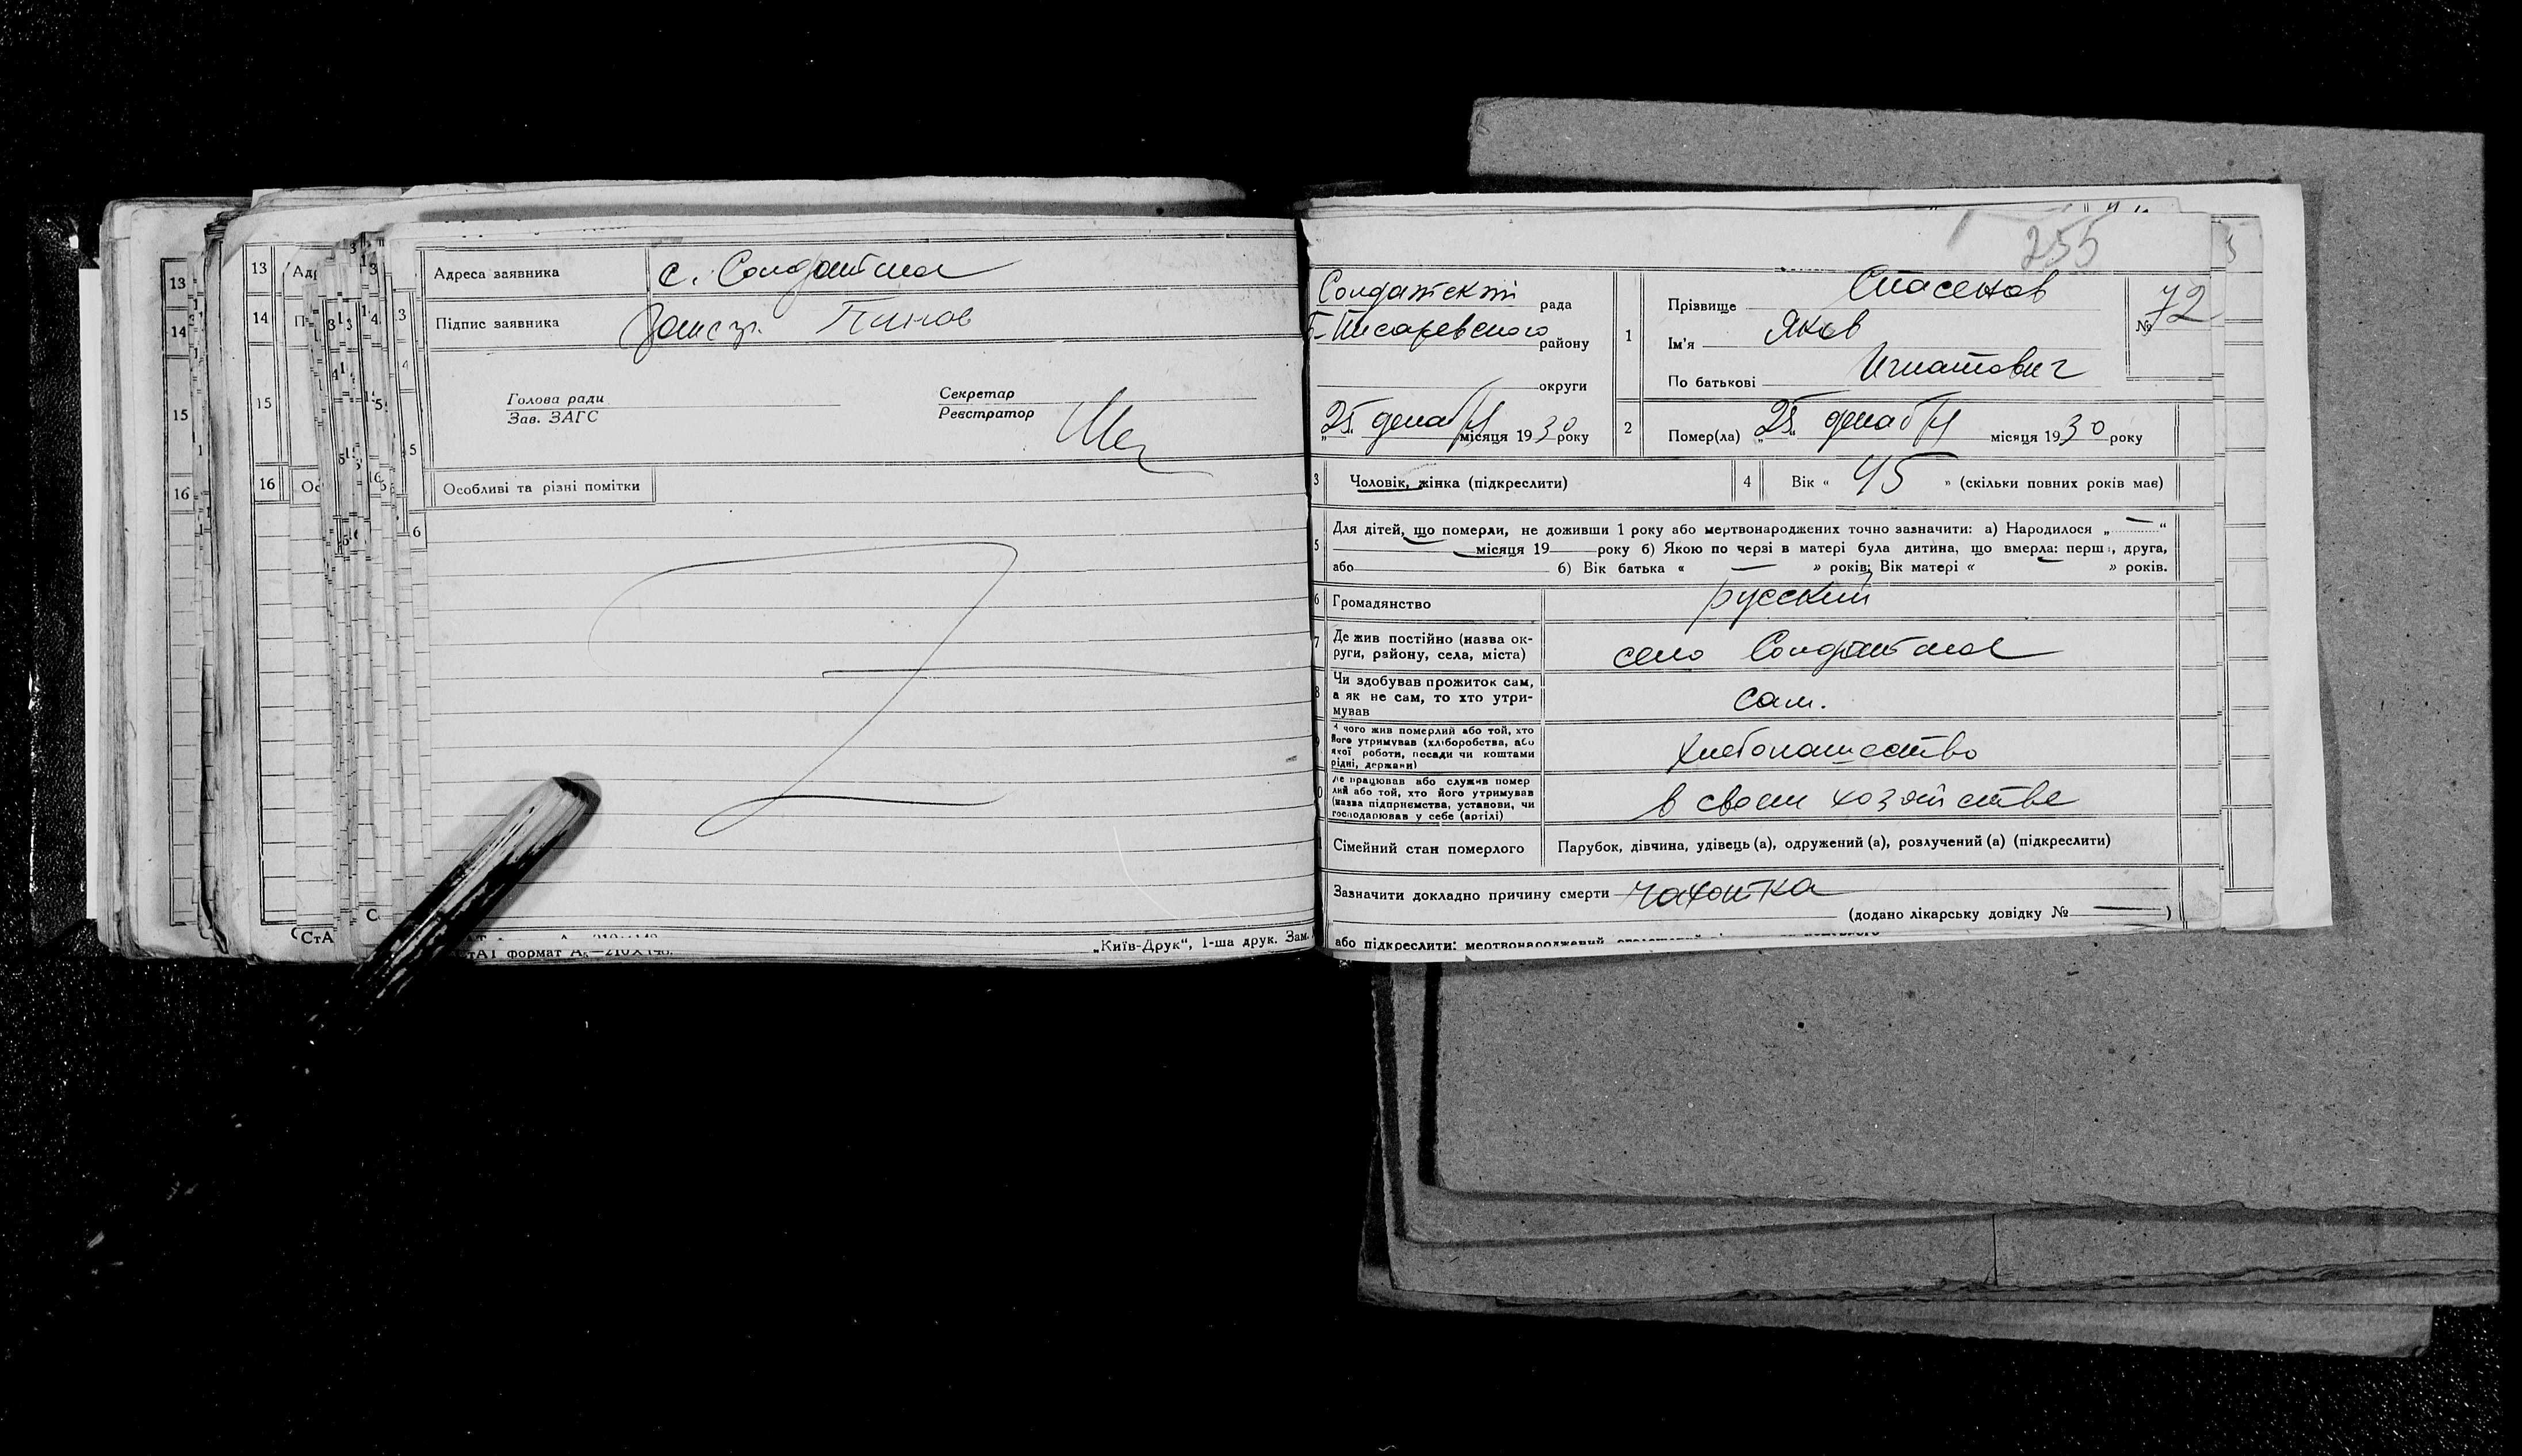 Адреса заявника с. Солдатское
Підпис заявника
Голова ради
Зав. ЗАГС
Секретар
Реєстратор
Особливі та різні помітки
„Київ-Друк“, 1-ша друк. Зам.
255
Солдатский рада
Б-Писаревского району
округи
„25“ декабря місяця 1930 року
1
Прізвище Спасенов
Ім'я Яков
По батькові Игнатович
№ 72
2 Помер(ла) „25“ декабря місяця 1930 року
3 Чоловік, жінка (підкреслити)
4 Вік « 45 » (скільки повних років має)
5 Для дітей, що померли, не доживши 1 року або мертвонароджених точно зазначити: а) Народилося „ — “
місяця 19 року б) Якою по черзі в матері була дитина, що вмерла: перша, друга,
або б) Вік батька « — » років; Вік матері « » років.
6 Громадянство русский
7 Де жив постійно (назва ок-
руги, району, села, міста) село Солдатское
8 Чи здобував прожиток сам,
а як не сам, то хто утри-
мував сам.
чого жив померлий або той, хто
його утримував (хліборобства, або
якої роботи, посади чи коштами
рідні, держави) хлебопашество
Де працював або служив помер
лий або той, хто його утримував
(назва підприємства, установи, чи
господарював у себе (артілі) в своем хозяйстве
Сімейний стан померлого Парубок, дівчина, удівець (а), одружений (а), розлучений (а) (підкреслити)
Зазначити докладно причину смерти чахотка
(додано лікарську довідку № — )
або підкреслити: мертвонароджений
13
14
15
16
13
14
15
16